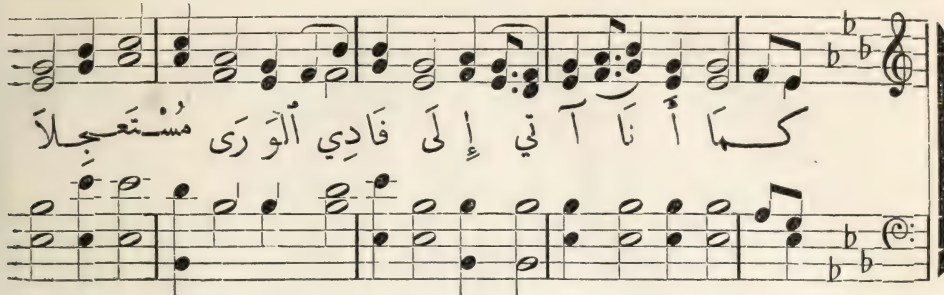 كـمَا أَ نَا آ تِي إِ لَى فَادِي ٱلْوَ رَى مُسْـتَعـجِـلاَ